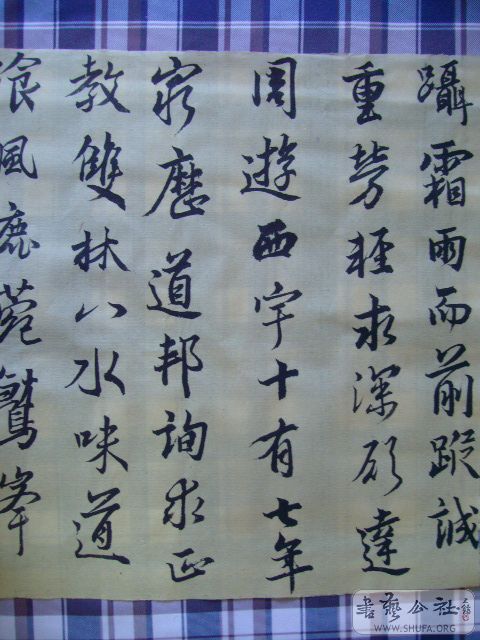 躡霜雨而前蹤誠
重勞輕求深願達
周遊西宇十有七年
窮歷道邦詢求正
教雙林八水味道
湌風鹿菀鷲峯
書藝公社
WWW.SHUFA.ORG